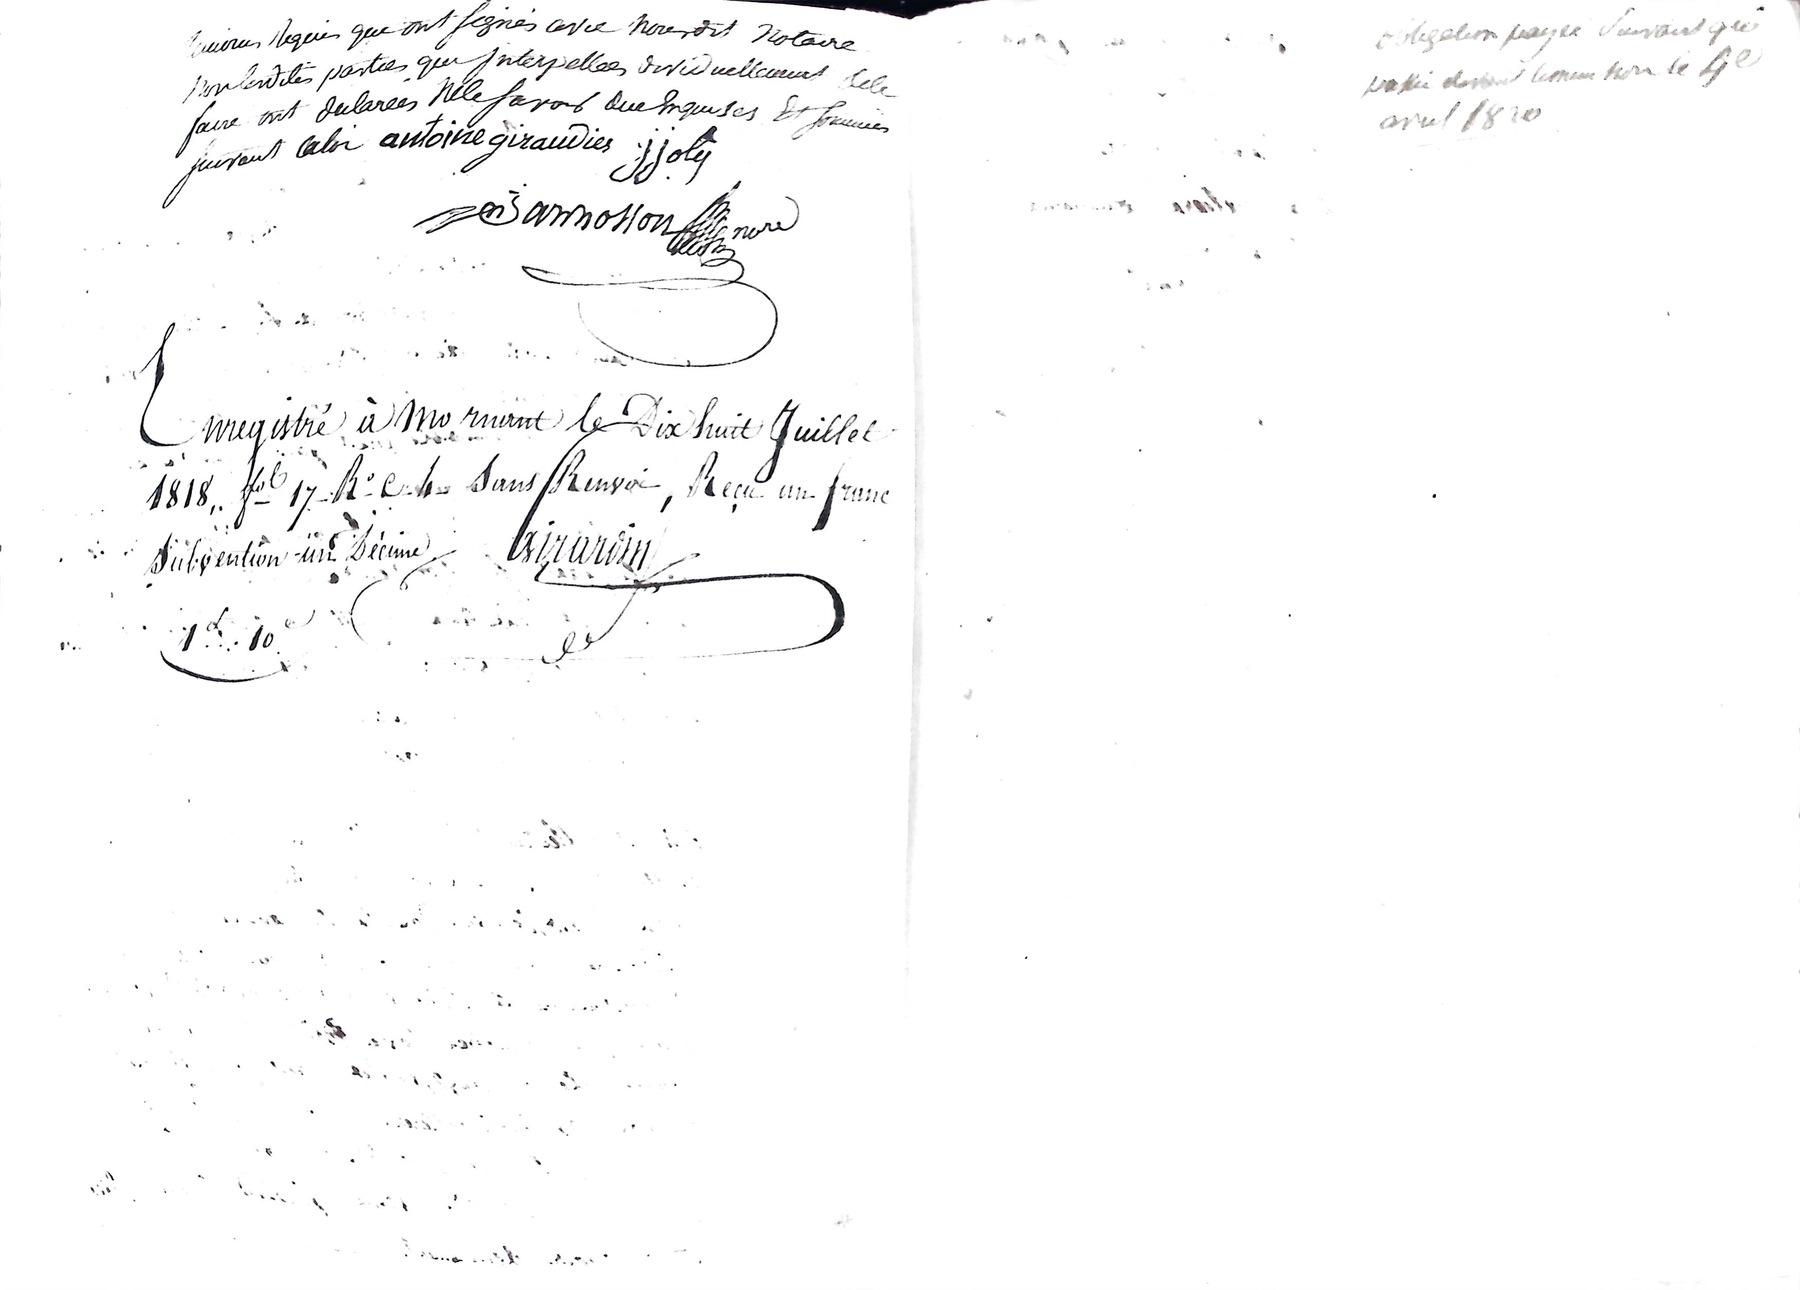 témoins Requis que ont signés avec nousdit Notaire
non lesdites parties qui Interpellées dividuellement dele
faire ont declarées Nele savoir due Enquises Et sommées
suivant laloi antoine giraudier jjoly
Bannosson nore
Enregistré à Mornant le Dix huit Juillet
1818, fol 17 Ro C. 4 Sans Renvoi, Reçu un franc
Subvention un Décime Girardin
1f. 10c
obligation payée Suivant qce
passée devant le
avril 1820